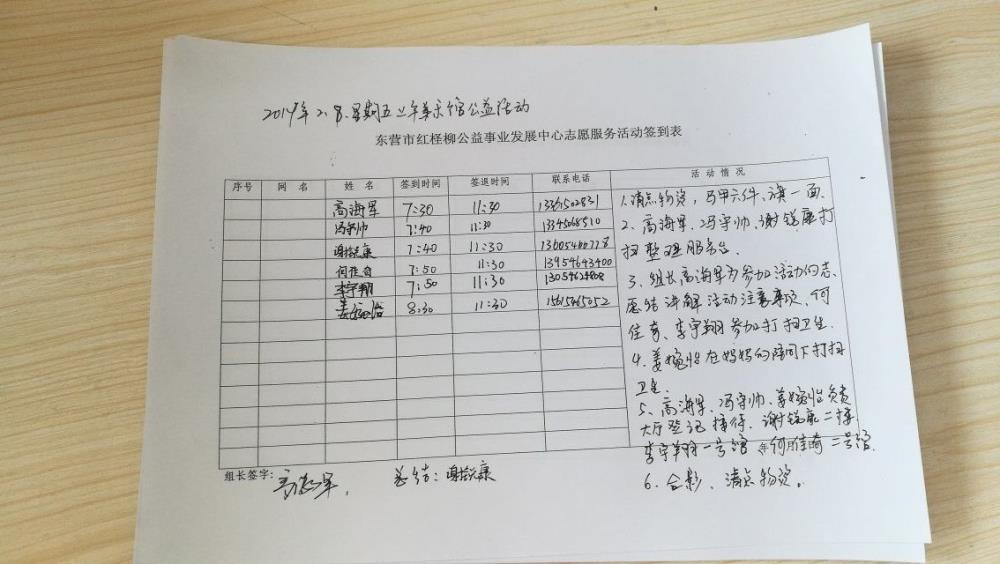 2019年2.8.星期五上午美术馆公益活动
东营市红柽柳公益事业发展中心志愿服务活动签到表
序号 网名 姓名 签到时间 签退时间 联系电话 活动情况
高海军 7:30 11:30
冯守帅 7:40 11:30
谢锐康 7:40 11:30
何佳奇 7:50 11:30 13954643400
李宇翔 7:50 11:30
姜婉怡 8:30 11:30
1.清点物资，马甲六件、旗一面.
2、高海军、冯守帅、谢锐康打
扫整理服务台.
3、组长高海军为参加活动的志
愿者讲解活动注意事项、何
佳奇、李宇翔参加打扫卫生.
4、姜婉怡在妈妈的陪同下打扫
卫生.
5、高海军、冯守帅、姜婉怡负责
大厅登记接待、谢锐康二楼
李宇翔一号馆 何佳琦二号馆.
6、合影、清点物资。
组长签字：高海军. 总结：谢锐康